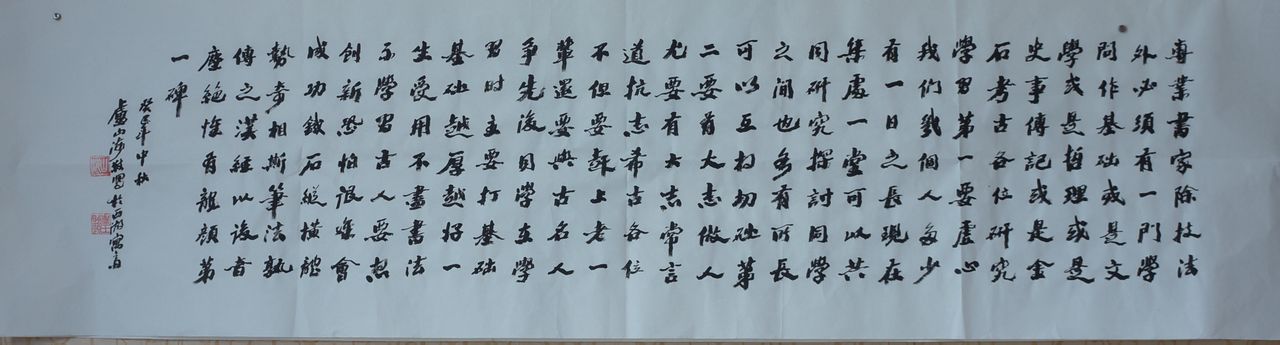 專業書家除技法
外必須有一門學
问作基础或是文
學或是哲理或是
史事傳記或是金
石考古各位研究
學習第一要虚心
我们我個人多少
有一日之長現在
集處一堂可以共
同研究探討同學
之间也多有所長
可以互相切磋第
二要有大志做人
尤要有大志常言
道抗志希古各位
不但要超上老一
輩還要與古名人
争先後同學在學
習时主要打基础
基础越厚越好一
生受用不盡書法
不學習古人要想
創新恐怕很難會
成功鐵石縱橫體
勢奇相斯筆法孰
傳之漢經以後音
塵絕惟有龍顏第
一碑
癸巳年中秋
盧山於